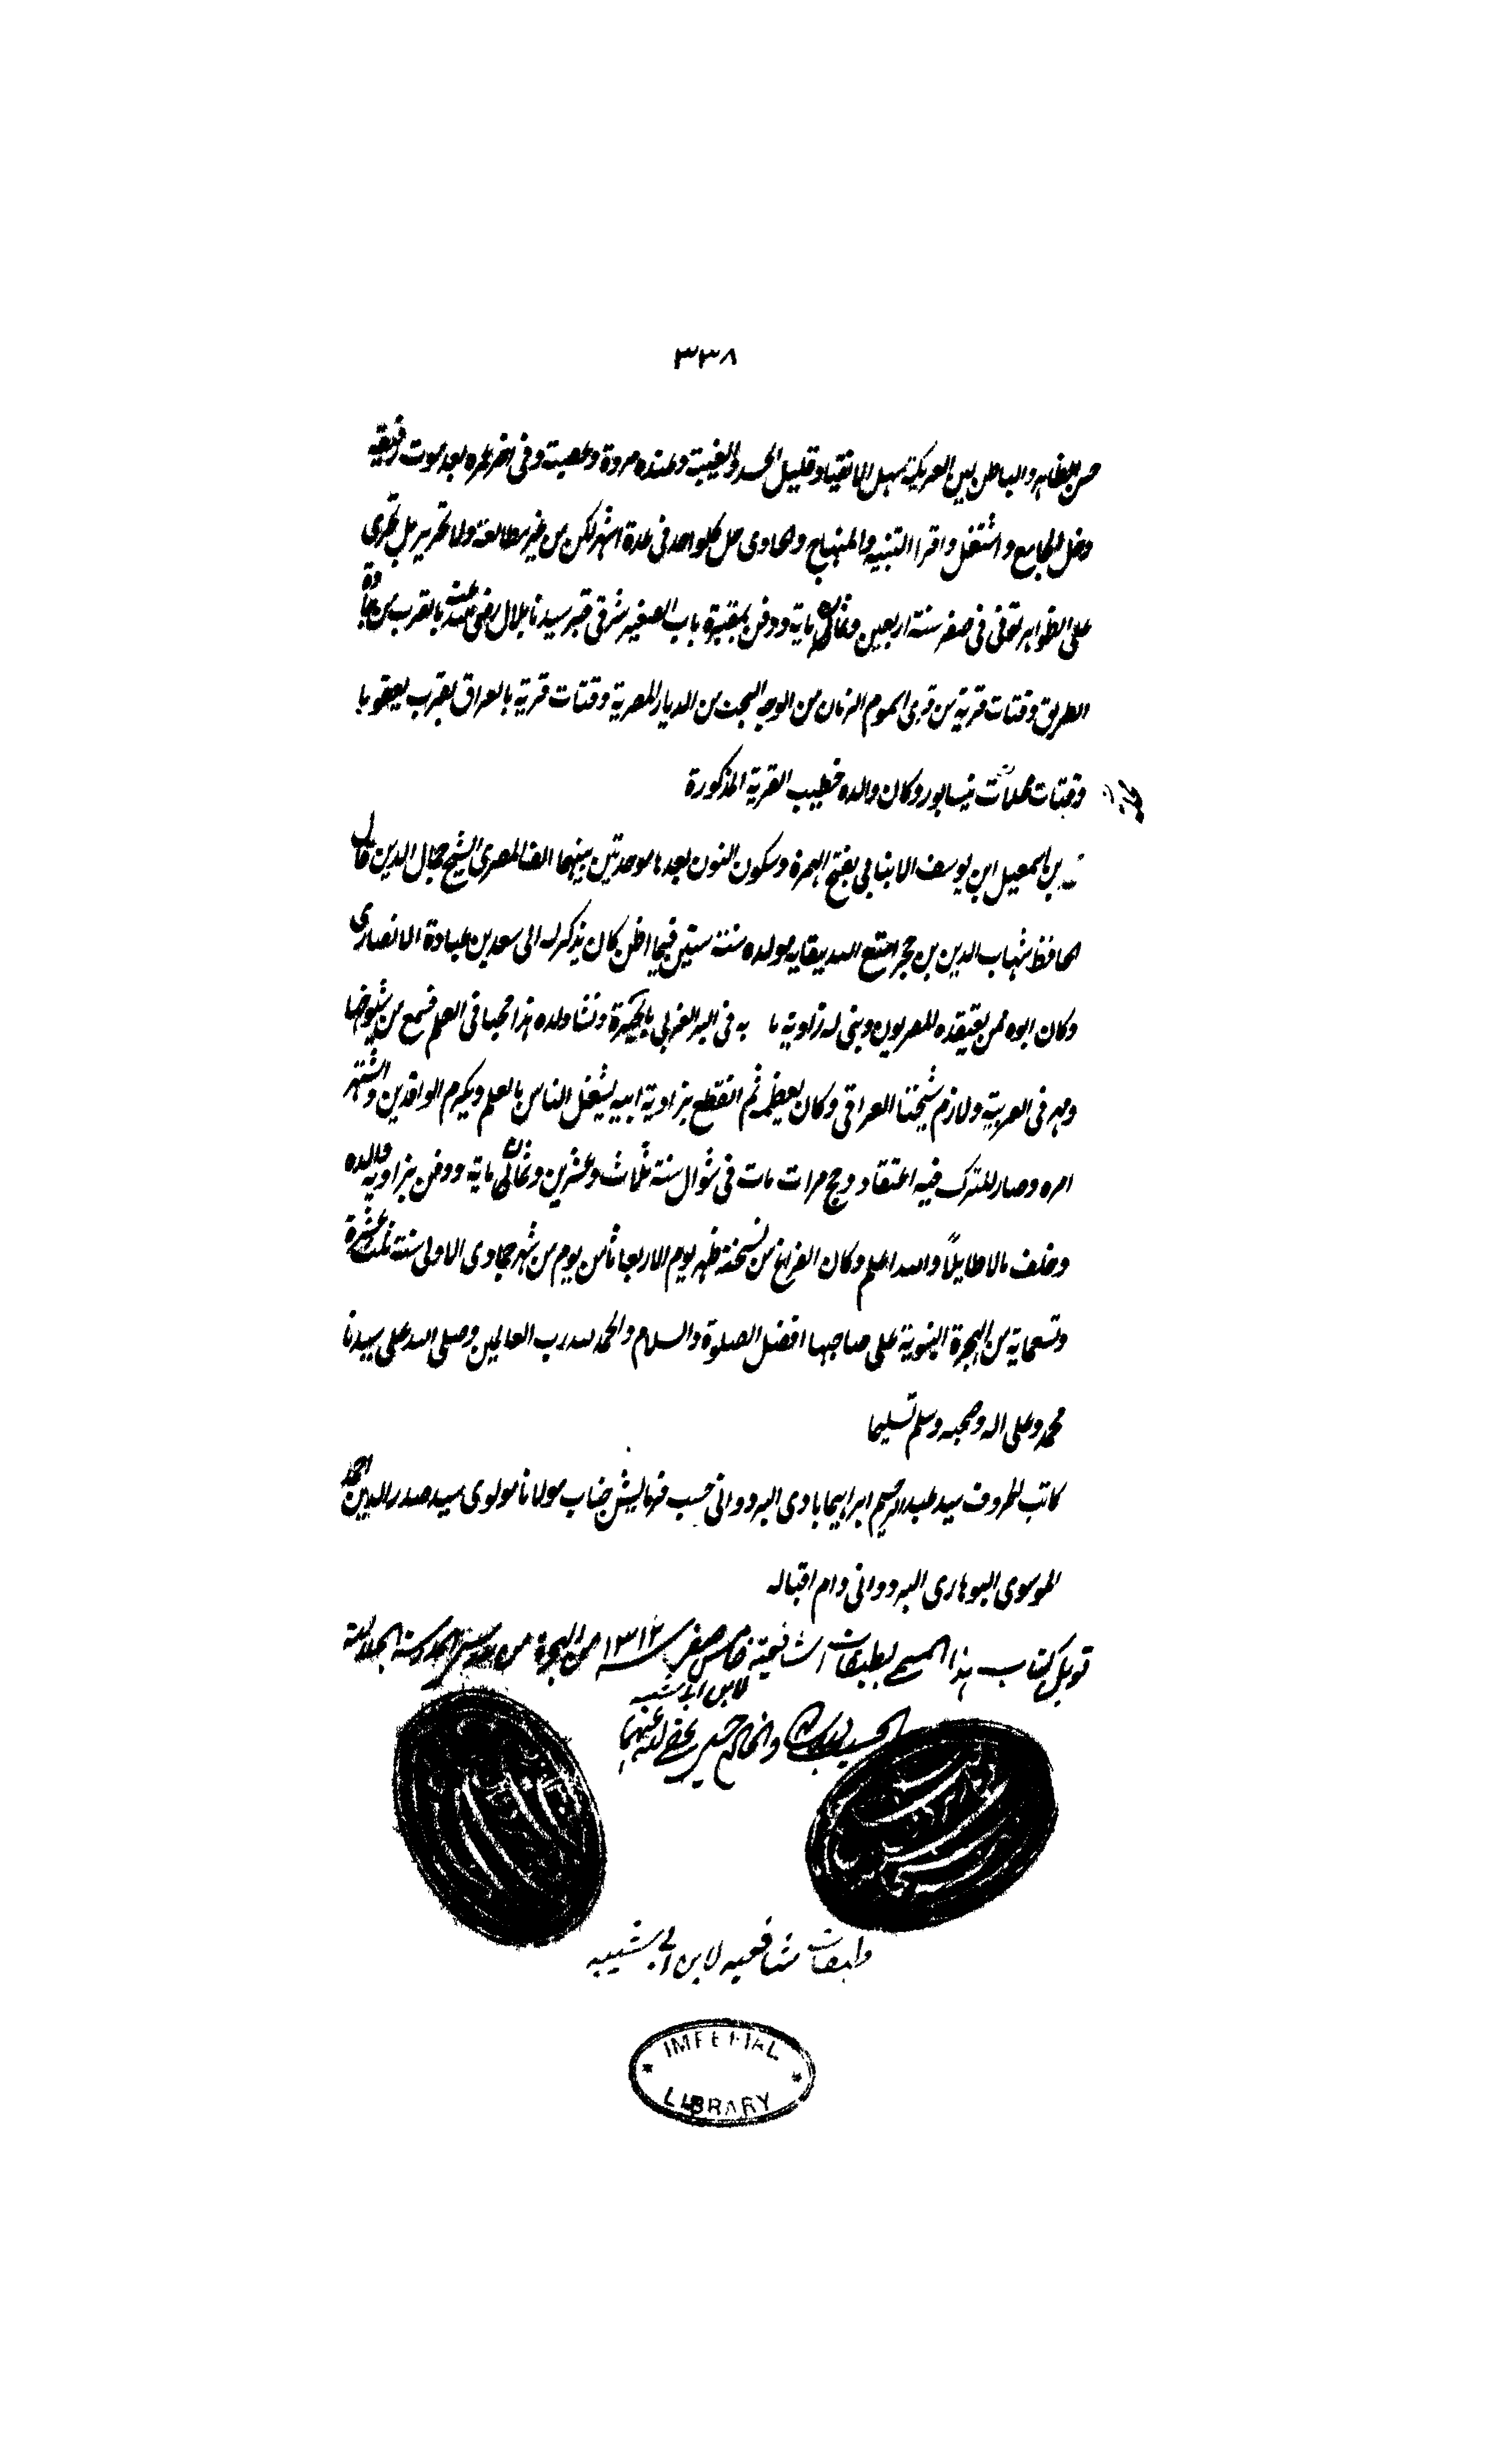 ٣٣٨
حسن الظاهر والباطن لين العريكة سهل الانقياد قليل الحسد والغيبة وعنده مروة وعصبية وفى اخر عمره بعد موت رفيقه
دخل الجامع واشتغل واقرا التنبيه والمنهاج والحاوى حل كلواحد فى مدة اشهر لكن من غير مطالعة ولا تحرير بل يجرى
على الظواهر توفى فى صفر سنة اربعين وثمانى ماية ودفن بمقبرة باب الصغير شرقى قبر سيدنا بلال رضى الله عنه بالقرب من جادة
الطريق وقتات قرية من قرى من الوجه من الديار المصرية وقتات قرية بالعراق بقرب يعقوبا
وقتات محلات نيسابور وكان والده خطيب القرية المذكورة
بن اسمعيل ابن يوسف الانبابى بفتح الهمزة وسكون النون بعدها موحدتين بينهما الف المصرى الشيخ جمال الدين قال
الحافظ شهاب الدين بن حجر امتع الله ببقايه مولده سنة ستين فيما اظن كان يذكر له الى سعد بن عبادة الانصارى
وكان ابوه ممن يعتقده المصريون وبنى له زاوية ما به فى البر الغربى بالجيزة ونشا ولده هذا محبا فى العلم فسمع من شيوخنا
ومهر فى العربية ولازم شيخنا العراقى وكان يعظمه ثم انقطع بزاوية ابيه يشغل الناس بالعلم ويكرم الوافدين واشتهر
امره وصار للترك فيه اعتقاد وحج مرات مات فى شوال سنة ثلاث وعشرين وثمانى ماية ودفن بزاوية والده
وخلف مالا طايلاً والله اعلم وكان الفراغ من نسخة ظهر يوم الاربعا ثامن يوم من شهر جمادى الاولى سنة ثلث عشرة
وتسعماية من الهجرة النبوية على صاحبها افضل الصلوة والسلام والحمد لله رب العالمين وصلى الله على سيدنا
محمد وعلى اله وصحبه وسلم تسليما
كاتب الحروف سيد عبد الرحيم ابراهيمابادى البردوانى حسب فهمايش جناب مولانا مولوى سيد صدر الدين احمد
الموسوى البوهارى البردوانى دام اقباله
قوبل كتاب هذا المسمى بطبقات الشافعية خامس صفر سنه ١٣١٢ من الهجرة من
لابن ابى شيبه
طبقات شافعيه لابن ابى شيبه
IMPERIAL
LIBRARY